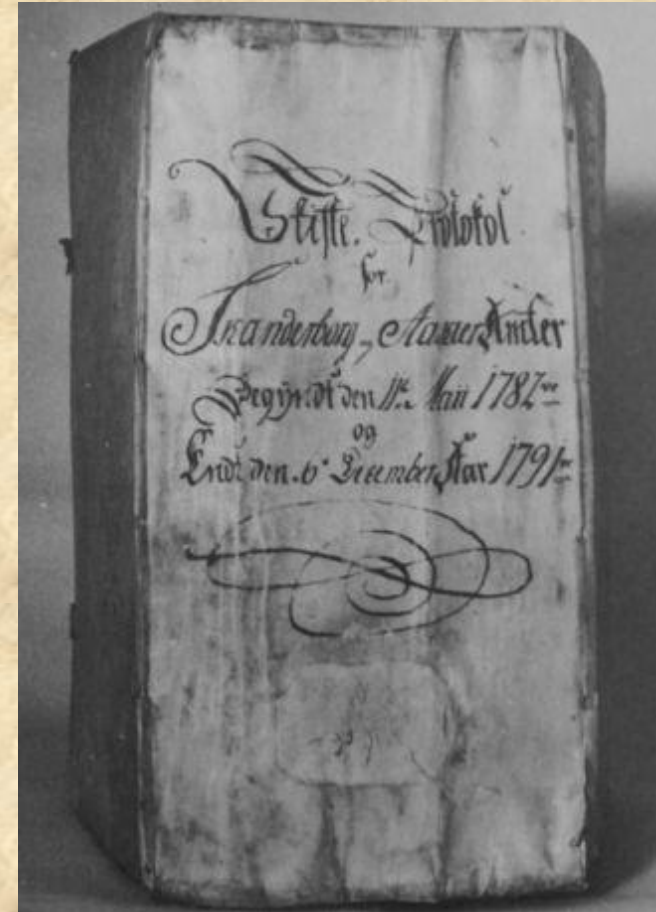 Skifte-Protokol
for
Skanderborg og Aarhuus Amter
Begyndt den 11te Maii 1787
og
Endt den 6te December Aar 1791